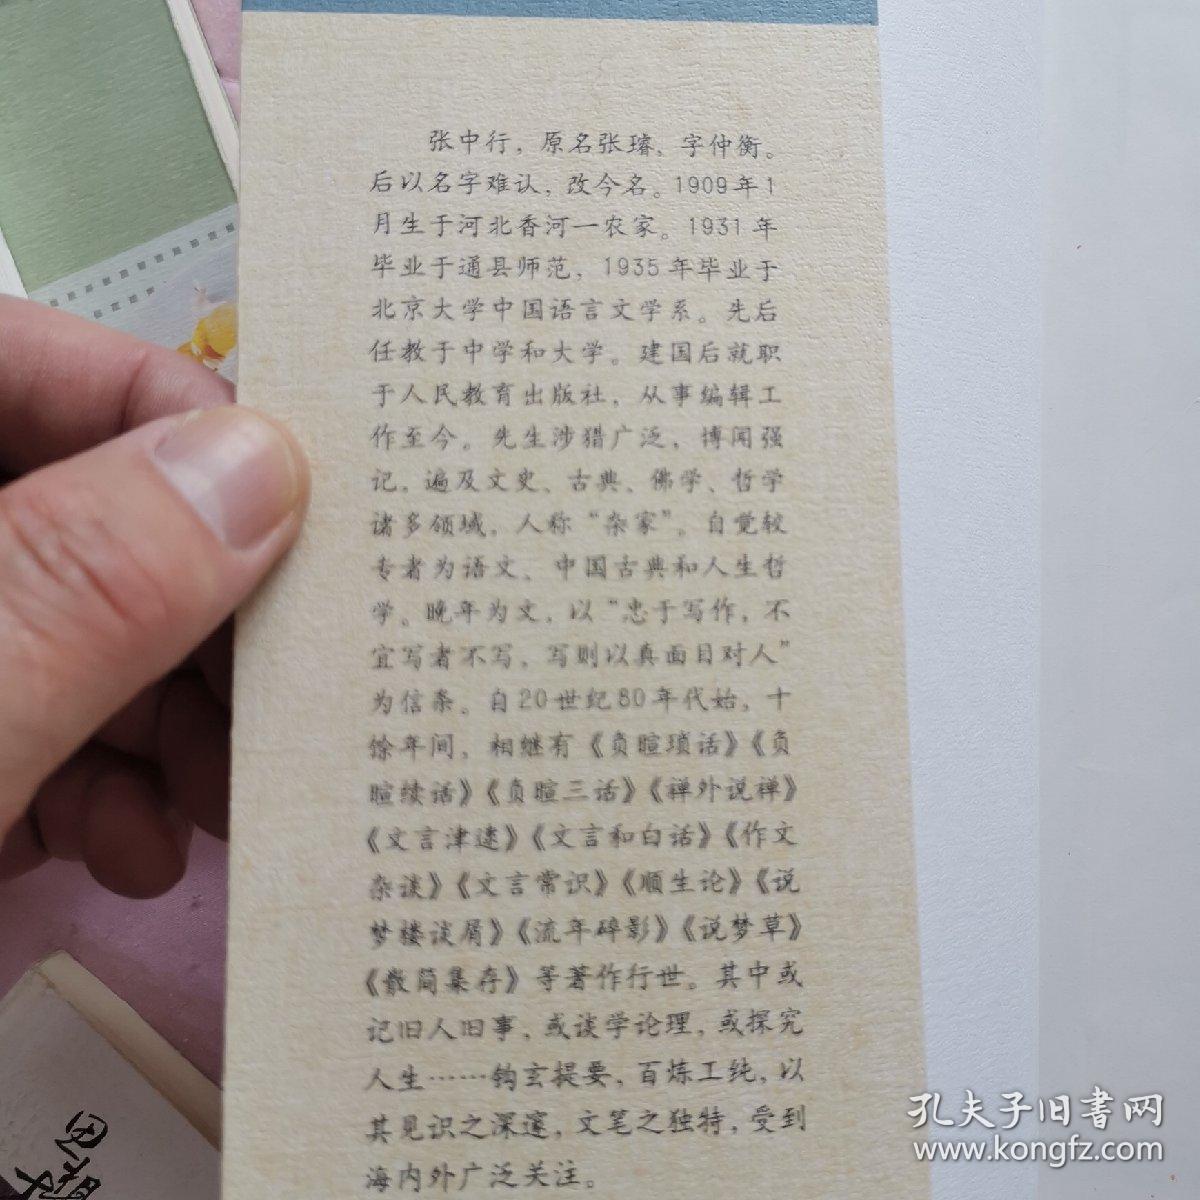 张中行，原名张璿，字仲衡。
后以名字难认，改今名。1909年1
月生于河北香河一农家。1931年
毕业于通县师范，1935年毕业于
北京大学中国语言文学系。先后
任教于中学和大学。建国后就职
于人民教育出版社，从事编辑工
作至今。先生涉猎广泛，博闻强
记，遍及文史、古典、佛学、哲学
诸多领域，人称“杂家”。自觉较
专者为语文、中国古典和人生哲
学。晚年为文，以“忠于写作，不
宜写者不写，写则以真面目对人”
为信条。自20世纪80年代始，十
馀年间，相继有《负暄琐话》《负
暄续话》《负暄三话》《禅外说禅》
《文言津逮》《文言和白话》《作文
杂谈》《文言常识》《顺生论》《说
梦楼谈屑》《流年碎影》《说梦草》
《散简集存》等著作行世。其中或
记旧人旧事，或谈学论理，或探究
人生……钩玄提要，百炼工纯，以
其见识之深邃，文笔之独特，受到
海内外广泛关注。
孔夫子旧书网
www.kongfz.com